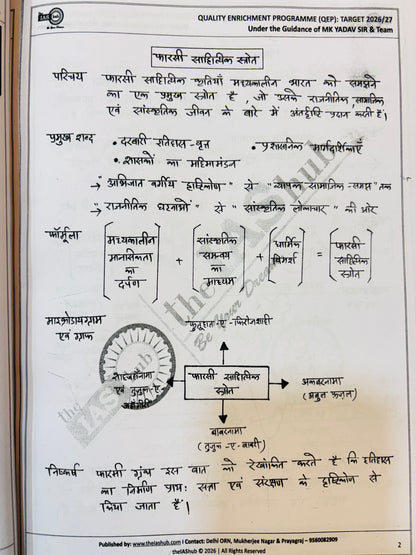 IAShub
QUALITY ENRICHMENT PROGRAMME (QEP): TARGET 2026/27
Under the Guidance of MK YADAV SIR & Team
फारसी साहित्यिक स्त्रोत
परिचय फारसी साहित्यिक कृतियाँ मध्यकालीन भारत को समझने
का एक प्रमुख स्त्रोत है, जो उसके राजनीतिक, सामाजिक
एवं सांस्कृतिक जीवन के बारे में अंतर्दृष्टि प्रदान करती हैं।
प्रमुख शब्द • दरबारी इतिहास-वृत्त • प्रशासनिक मार्गदर्शिकाएँ
• शासकों का महिमामंडन
→ "अभिजात वर्गीय दृष्टिकोण" से "व्यापक सामाजिक समझ" तक
→ "राजनीतिक घटनाओं" से "सांस्कृतिक लोकाचार" की ओर
फॉर्मूला [मध्यकालीन मानसिकता का दर्पण] + [सांस्कृतिक समन्वय का माध्यम] + [धार्मिक विमर्श] = [फारसी साहित्यिक स्त्रोत]
माइक्रोडायग्राम
एवं ग्राफ
फुतूहात-ए-फिरोजशाही
एवं
फारसी साहित्यिक
स्त्रोत
अकबरनामा
(अबुल फजल)
बाबरनामा
(तुजुक-ए-बाबरी)
निष्कर्ष फारसी ग्रंथ इस बात को रेखांकित करते हैं कि इतिहास
का निर्माण प्रायः सत्ता एवं संरक्षण के दृष्टिकोण से
किया जाता है।
the IAShub
Be Your Dream
the
IAShub
Published by: www.theiashub.com I Contact: Delhi ORN, Mukherjee Nagar & Prayagraj – 9560082909
theIAShub © 2026 | All Rights Reserved
2